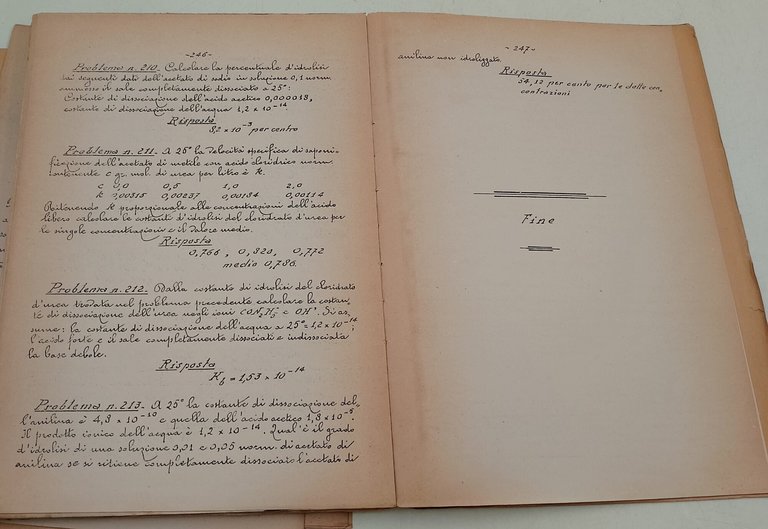 -246-
Problema n. 210. Calcolare la percentuale d'idrolisi
dai seguenti dati dell'acetato di sodio in soluzione 0,1 norm.
ammesso il sale completamente dissociato a 25°:
Costante di dissociazione dell'acido acetico 0,000018,
costante di dissociazione dell'acqua 1,2 x 10⁻¹⁴
Risposta
8,2 x 10⁻³ per cento
Problema n. 211. A 25° la velocità specifica di saponi-
ficazione dell'acetato di metile con acido cloridrico norm.
contenente c gr. mol. di urea per litro è k.
c 0,0 0,5 1,0 2,0
k 0,00315 0,00237 0,00184 0,00114
Ritenendo k proporzionale alle concentrazioni dell'acido
libero calcolare le costanti d'idrolisi del cloridrato d'urea per
le singole concentrazioni e il valore medio.
Risposta
0,766, 0,820, 0,772
medio 0,786.
Problema n. 212. Dalla costante di idrolisi del cloridrato
d'urea trovata nel problema precedente calcolare la costan-
te di dissociazione dell'urea negli ioni CON₂H₅˙ e OH'. Si as-
sume: la costante di dissociazione dell'acqua a 25° = 1,2 x 10⁻¹⁴;
l'acido forte e il sale completamente dissociati e indissociata
la base debole.
Risposta
K_b = 1,53 x 10⁻¹⁴
Problema n. 213. A 25° la costante di dissociazione del-
l'anilina è 4,8 x 10⁻¹⁰ e quella dell'acido acetico 1,8 x 10⁻⁵,
il prodotto ionico dell'acqua è 1,2 x 10⁻¹⁴. Qual'è il grado
d'idrolisi di una soluzione 0,01 e 0,05 norm. di acetato di
anilina se si ritiene completamente dissociato l'acetato di
-247-
anilina non idrolizzato.
Risposta
54,12 per cento per le dette con
centrazioni
Fine